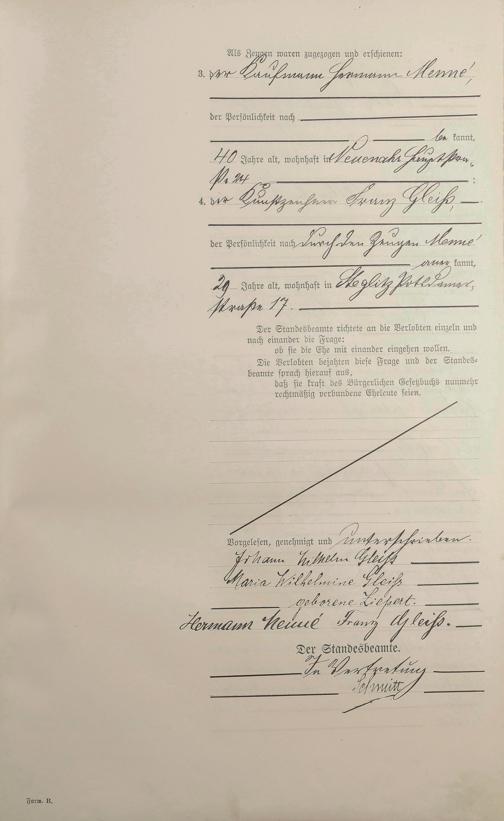 Als Zeugen waren zugezogen und erschienen:
3. der Kaufmann Hermann Menné,
der Persönlichkeit nach
be kannt,
40 Jahre alt, wohnhaft in Neuenahr Hauptstra-
ße 24;
4. der Kunstzeichner Franz Gleiß,
der Persönlichkeit nach durch den Zeugen Menné
aner kannt,
29 Jahre alt, wohnhaft in Steglitz Potsdamer-
straße 17.
Der Standesbeamte richtete an die Verlobten einzeln und
nach einander die Frage:
ob sie die Ehe mit einander eingehen wollen.
Die Verlobten bejahten diese Frage und der Standes-
beamte sprach hierauf aus,
daß sie kraft des Bürgerlichen Gesetzbuchs nunmehr
rechtmäßig verbundene Eheleute seien.
Vorgelesen, genehmigt und unterschrieben.
Johann Wilhelm Gleiß
Maria Wilhelmine Gleiß
geborene Liefert.
Hermann Menné Franz Gleiß.
Der Standesbeamte.
In Vertretung
Schmitt
Form. B.